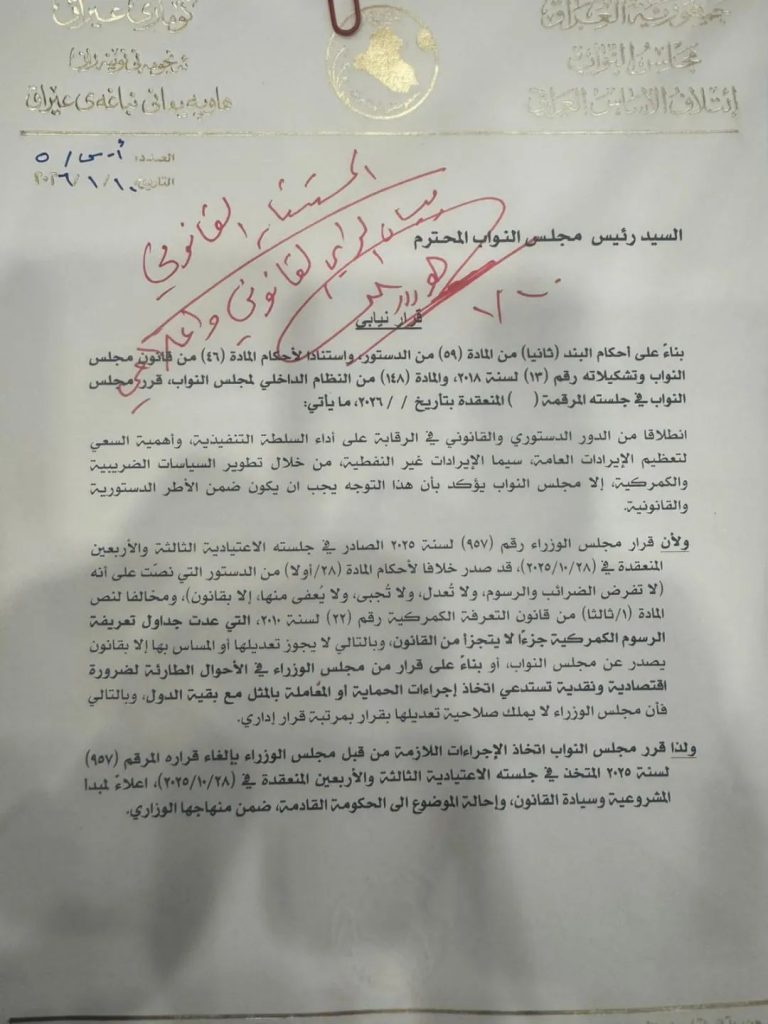 جمهورية العراق
مجلس النواب
ائتلاف الأساس العراقي
كۆماری عێراق
ئەنجومەنی نوێنەران
هاوپەیمانی بناغەی عێراق
العدد: أ.س/ ٥
التاريخ: ٢٠٢٦/١/١٠
المستشار القانوني
بيان الرأي القانوني وإعلامي
السيد رئيس مجلس النواب المحترم
قرار نيابي
بناءً على أحكام البند (ثانيا) من المادة (٥٩) من الدستور، واستنادا لأحكام المادة (٤٦) من قانون مجلس
النواب وتشكيلاته رقم (١٣) لسنة ٢٠١٨، والمادة (١٤٨) من النظام الداخلي لمجلس النواب، قرر مجلس
النواب في جلسته المرقمة ( ) المنعقدة بتأريخ / / ٢٠٢٦، ما يأتي:
انطلاقا من الدور الدستوري والقانوني في الرقابة على أداء السلطة التنفيذية، وأهمية السعي
لتعظيم الإيرادات العامة، سيما الإيرادات غير النفطية، من خلال تطوير السياسات الضريبية
والكمركية، إلا مجلس النواب يؤكد بأن هذا التوجه يجب ان يكون ضمن الأطر الدستورية
والقانونية.
ولأن قرار مجلس الوزراء رقم (٩٥٧) لسنة ٢٠٢٥ الصادر في جلسته الاعتيادية الثالثة والأربعين
المنعقدة في (٢٠٢٥/١٠/٢٨)، قد صدر خلافا لأحكام المادة (٢٨/أولا) من الدستور التي نصّت على أنه
(لا تفرض الضرائب والرسوم، ولا تُعدل، ولا تُجبى، ولا يُعفى منها، إلا بقانون)، ومخالفا لنص
المادة (١/ثالثا) من قانون التعرفة الكمركية رقم (٢٢) لسنة ٢٠١٠، التي عدت جداول تعريفة
الرسوم الكمركية جزءًا لا يتجزأ من القانون، وبالتالي لا يجوز تعديلها أو المساس بها إلا بقانون
يصدر عن مجلس النواب، أو بناءً على قرار من مجلس الوزراء في الأحوال الطارئة لضرورة
اقتصادية ونقدية تستدعي اتخاذ إجراءات الحماية أو المُعاملة بالمثل مع بقية الدول، وبالتالي
فأن مجلس الوزراء لا يملك صلاحية تعديلها بقرار بمرتبة قرار إداري.
ولذا قرر مجلس النواب اتخاذ الإجراءات اللازمة من قبل مجلس الوزراء بإلغاء قراره المرقم (٩٥٧)
لسنة ٢٠٢٥ المتخذ في جلسته الاعتيادية الثالثة والأربعين المنعقدة في (٢٠٢٥/١٠/٢٨)، اعلاءً لمبدأ
المشروعية وسيادة القانون، وإحالة الموضوع الى الحكومة القادمة، ضمن منهاجها الوزاري.